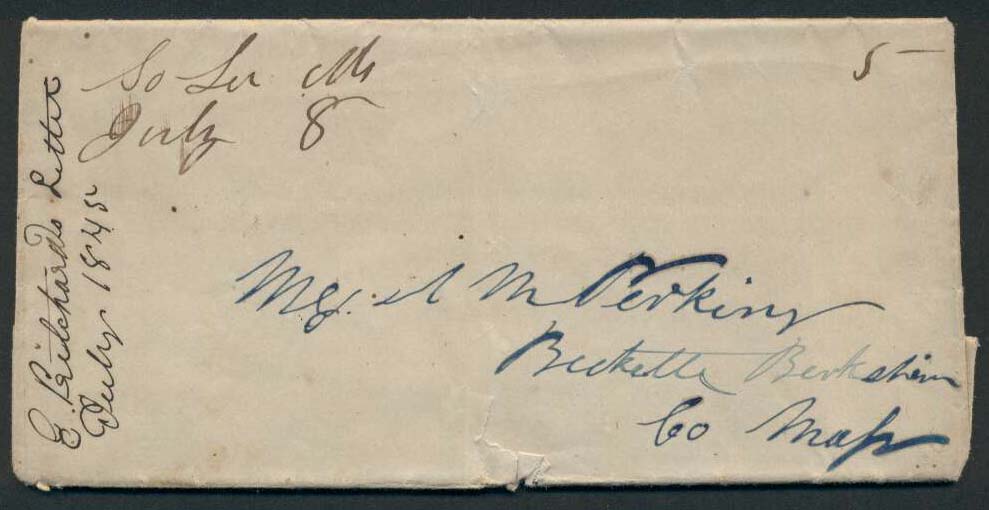 So Lee Ms
July 8
5
E. Pritchards Letter
July 1845
M A M Perkins
Beckette Berkshire
Co Mass